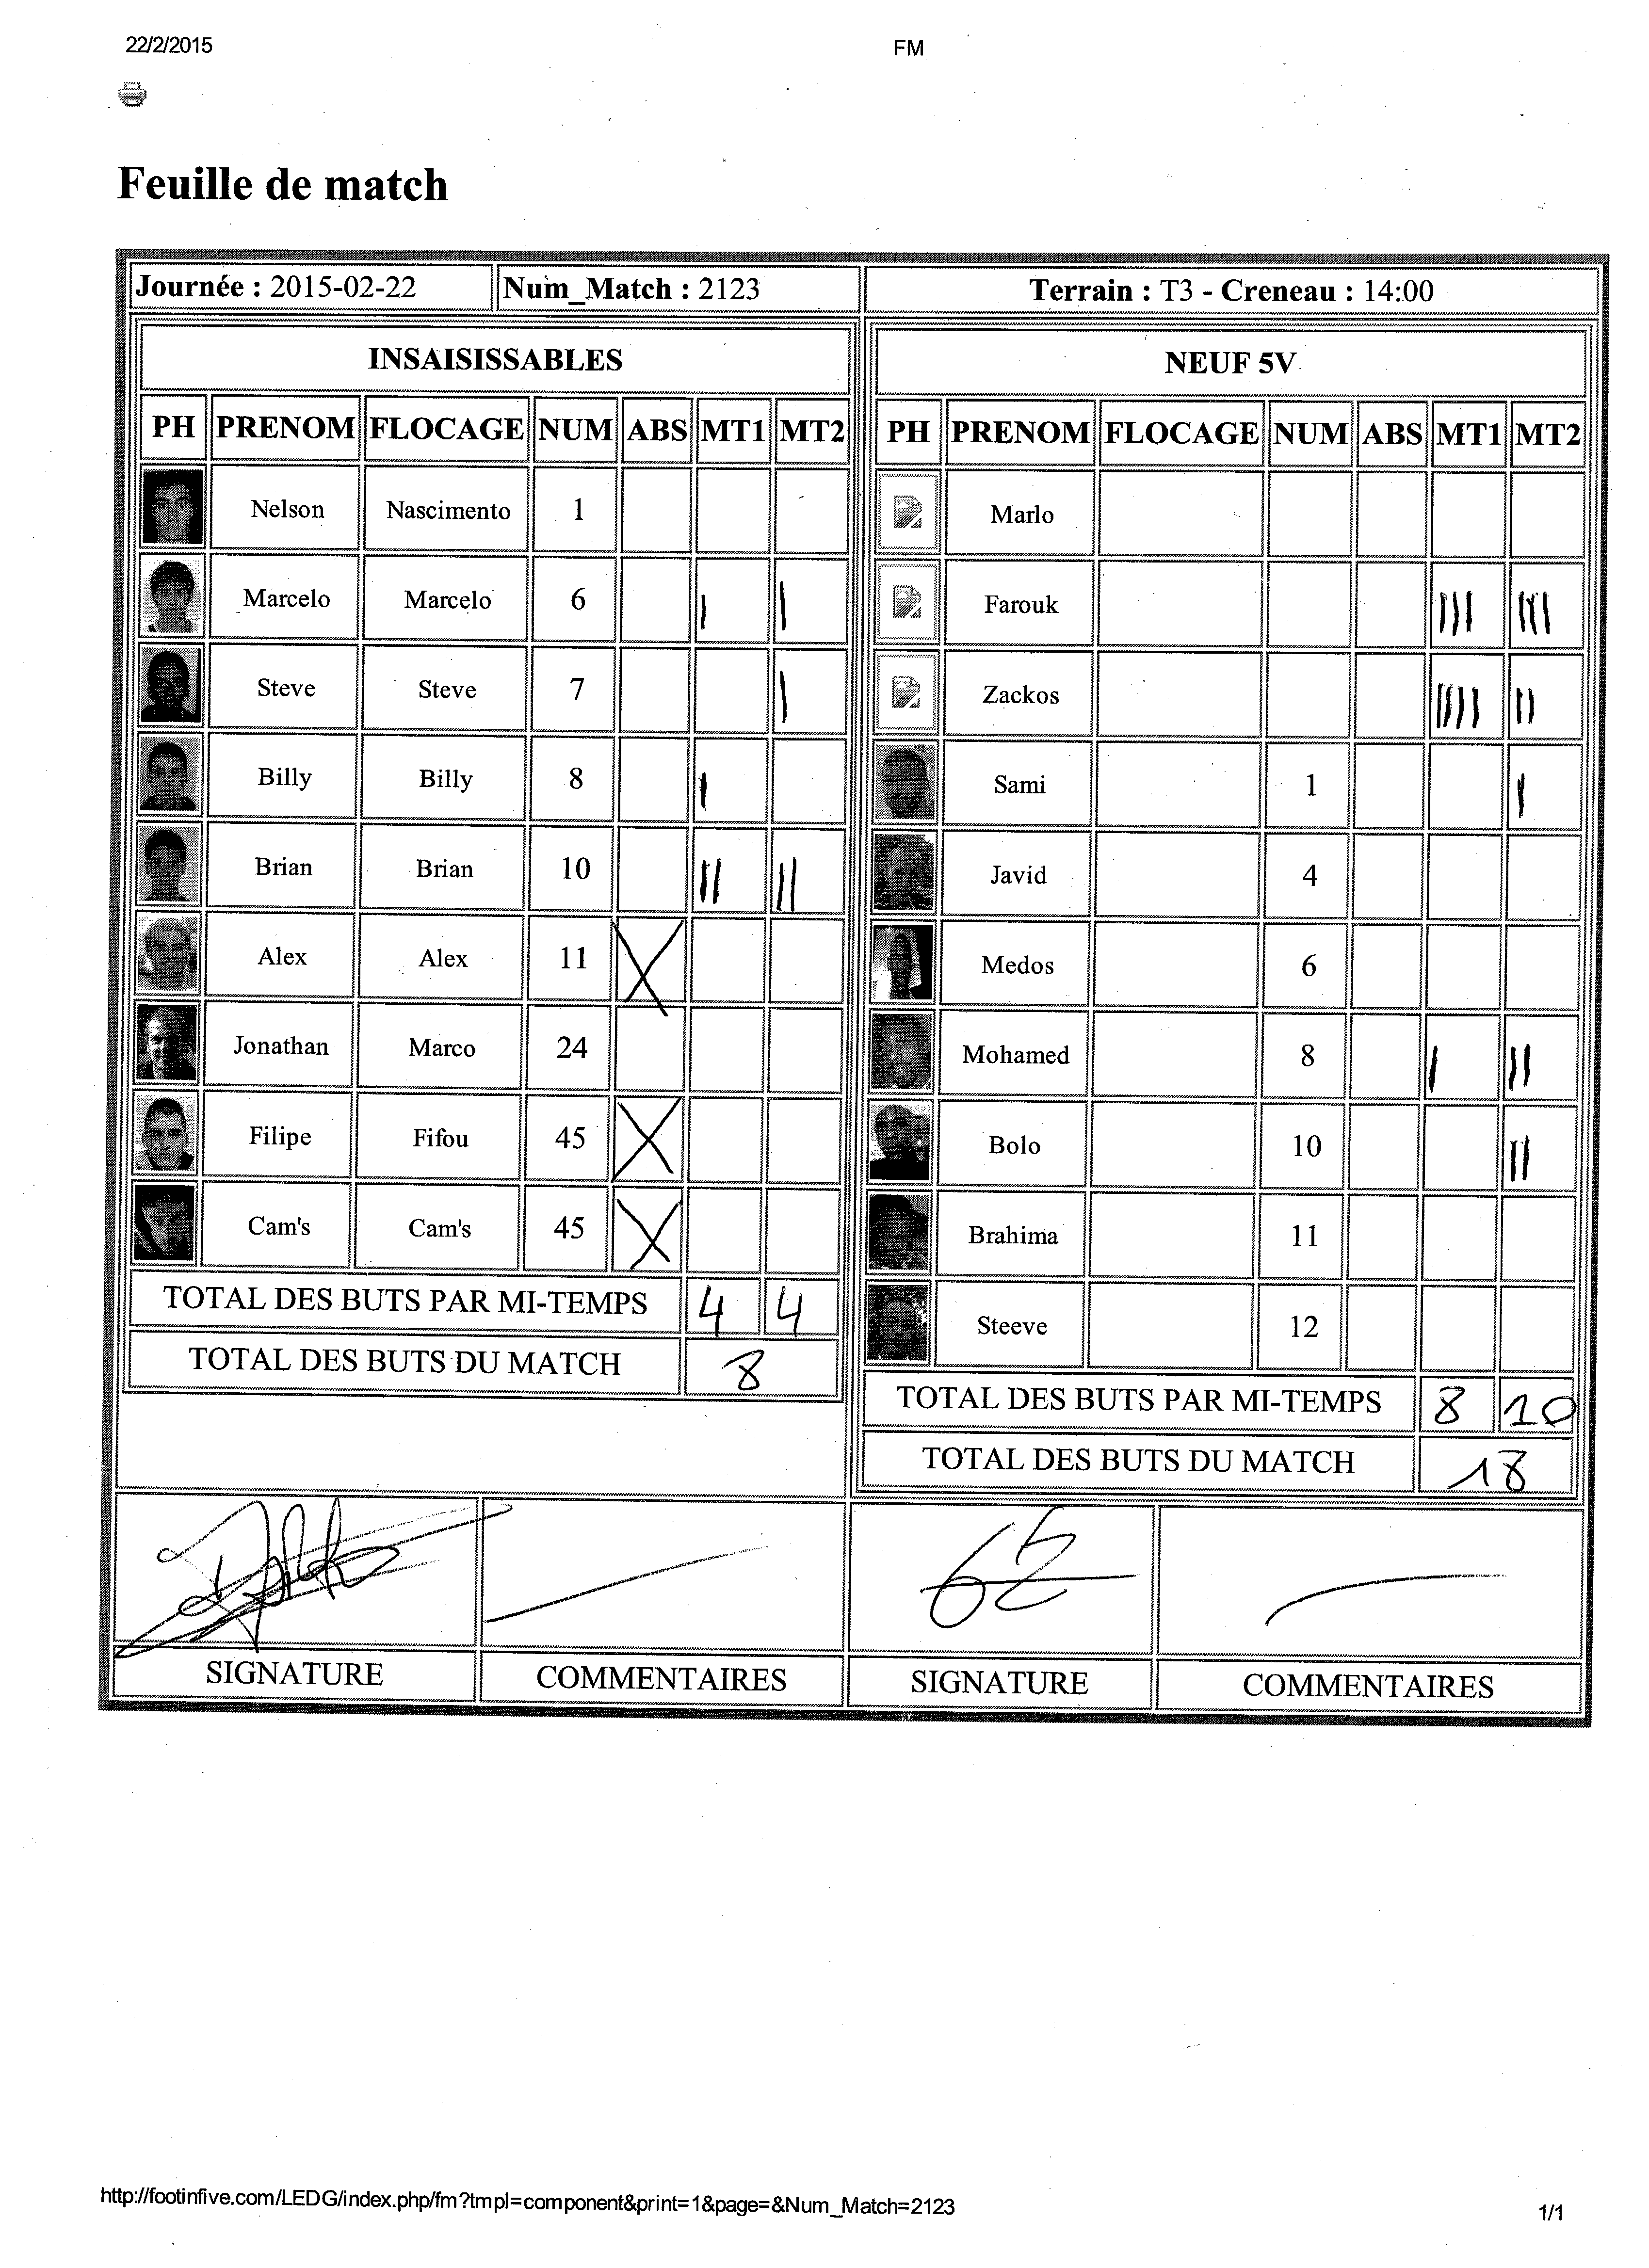 22/2/2015 FM
Feuille de match
Journée : 2015-02-22 Num_Match : 2123 Terrain : T3 - Creneau : 14:00
INSAISISSABLES
PH PRENOM FLOCAGE NUM ABS MT1 MT2
Nelson Nascimento 1
Marcelo Marcelo 6 | |
Steve Steve 7 |
Billy Billy 8 |
Brian Brian 10 || ||
Alex Alex 11 X
Jonathan Marco 24
Filipe Fifou 45 X
Cam's Cam's 45 X
TOTAL DES BUTS PAR MI-TEMPS 4 4
TOTAL DES BUTS DU MATCH 8
NEUF 5V
PH PRENOM FLOCAGE NUM ABS MT1 MT2
Marlo
Farouk ||| |||
Zackos |||| ||
Sami 1 |
Javid 4
Medos 6
Mohamed 8 | ||
Bolo 10 ||
Brahima 11
Steeve 12
TOTAL DES BUTS PAR MI-TEMPS 8 10
TOTAL DES BUTS DU MATCH 18
SIGNATURE COMMENTAIRES SIGNATURE COMMENTAIRES
http://footinfive.com/LEDG/index.php/fm?tmpl=component&print=1&page=&Num_Match=2123 1/1